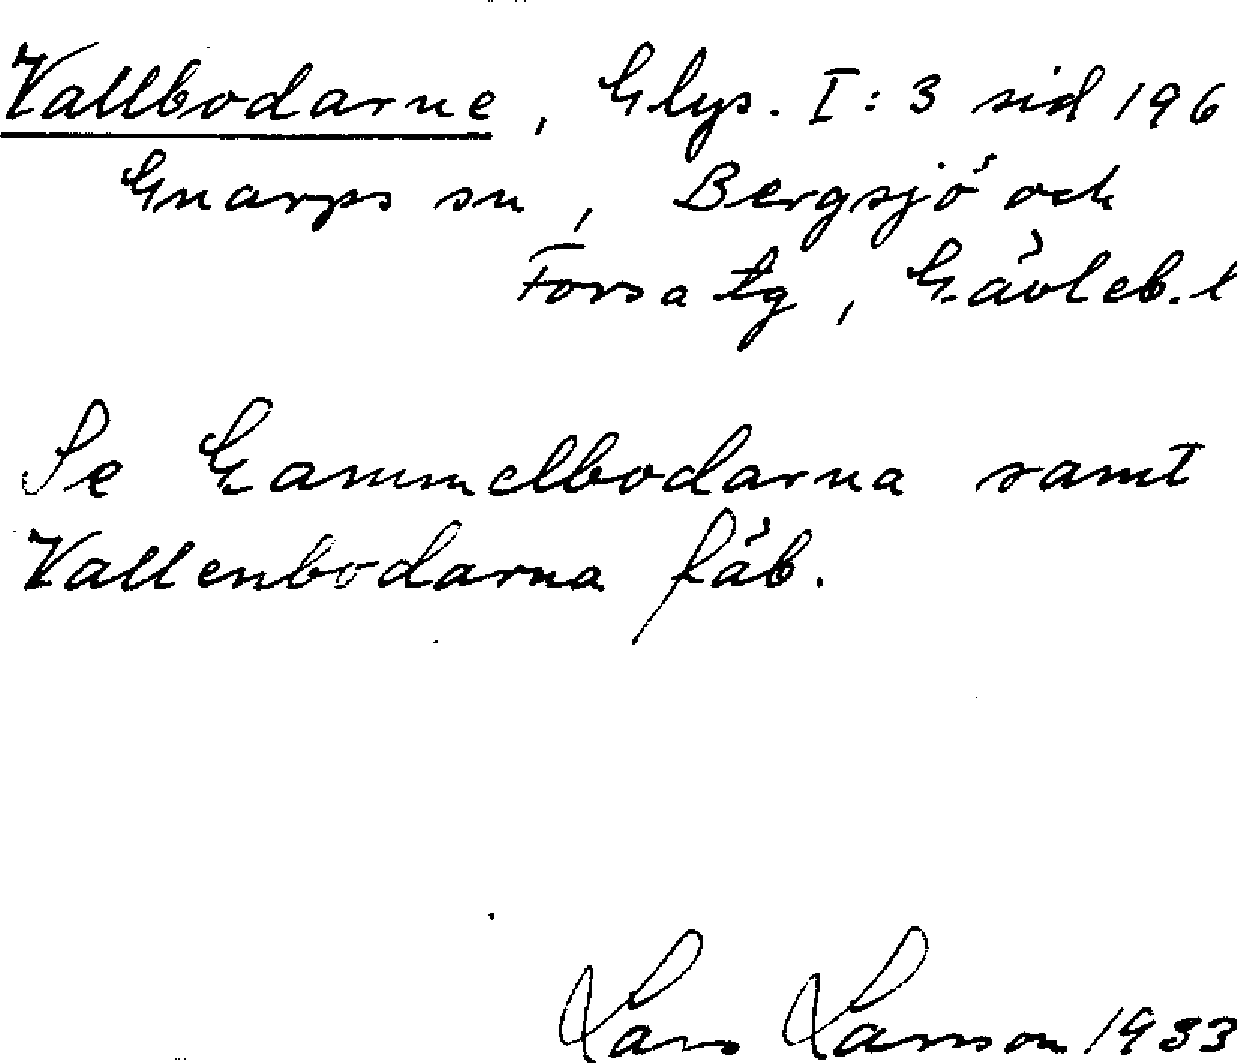 Vallbodarne, Glys. I:3 sid 196
Gnarps sn, Bergsjö och
Forsa tg, Gävleb. l
Se Gammelbodarna samt
Vallenbodarna fäb.
Lars Larsson 1933